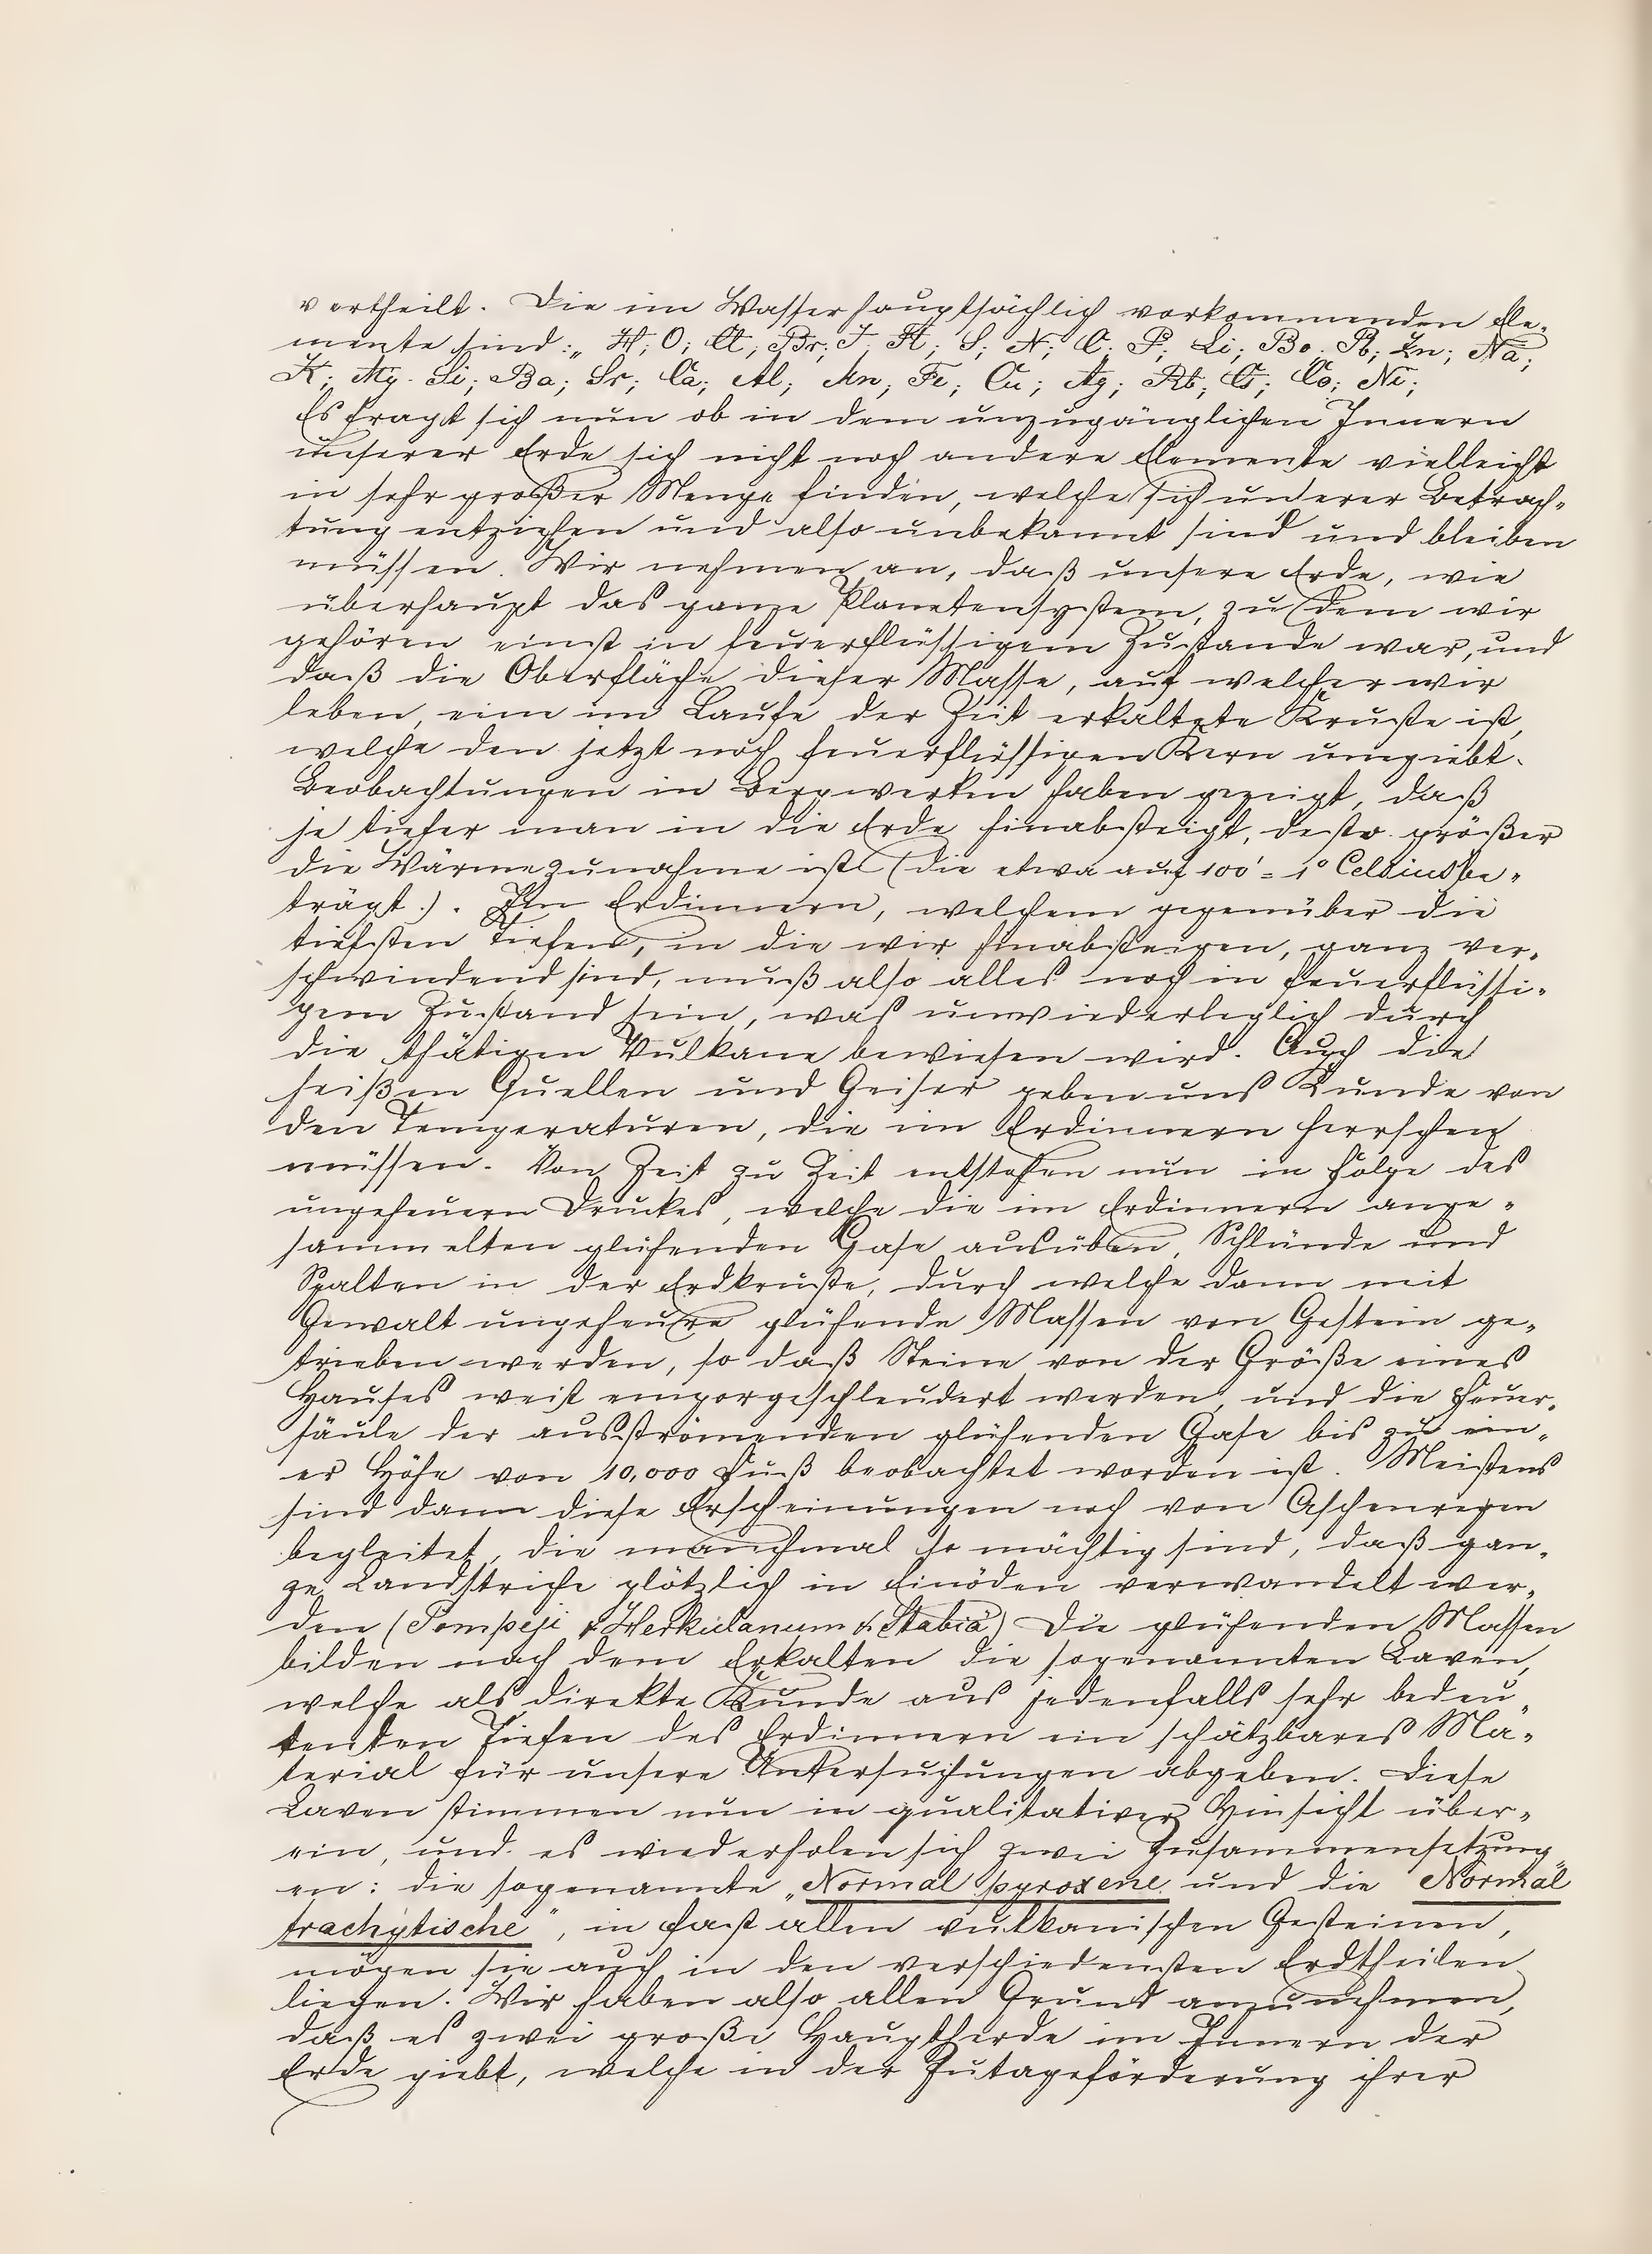 vertheilt. Die im Wasser hauptsächlich vorkommenden Ele-
mente sind: „ H; O; Cl; Br; J; Fl; S; N; C; P; Li; Bo. Pb; Zn; Na;
K; Mg. Si; Ba; Sr; Ca; Al; Mn; Fe; Cu; Ag; Rb; Cs; Co; Ni;
Es fragt sich nun ob in dem unzugänglichen Innern
unserer Erde sich nicht noch andere Elemente vielleicht
in sehr großer Menge finden, welche sich unserer Betrach-
tung entziehen und also unbekannt sind und bleiben
müssen. Wir nehmen an, daß unsere Erde, wie
überhaupt das ganze Planetensystem, zu dem wir
gehören einst in feuerflüssigem Zustande war, und
daß die Oberfläche dieser Masse, auf welcher wir
leben, eine im Laufe der Zeit erkaltete Kruste ist,
welche den jetzt noch feuerflüssigen Kern umgiebt.
Beobachtungen in Bergwerken haben gezeigt, daß
je tiefer man in die Erde hinabsteigt, desto größer
die Wärmezunahme ist (die etwa auf 100' = 1° Celsius be-
trägt.). Im Erdinnern, welchem gegenüber die
tiefsten Tiefen, in die wir hinabsteigen, ganz ver-
schwindend sind, muß also alles noch in feuerflüssi-
gem Zustand sein, was unwiederleglich durch
die thätigen Vulkane bewiesen wird. Auch die
heißen Quellen und Geiser geben uns Kunde von
den Temperaturen, die im Erdinnern herrschen
müssen. Von Zeit zu Zeit entstehen nun in Folge des
ungeheuern Druckes, welche die im Erdinnern ange-
sammelten glühenden Gase ausüben, Schlünde und
Spalten in der Erdkruste, durch welche dann mit
Gewalt ungeheure glühende Massen von Gestein ge-
trieben werden, so daß Steine von der Größe eines
Hauses weit emporgeschleudert werden, und die Feuer-
säule der ausströmenden glühenden Gase bis zu ein-
er Höhe von 10,000 Fuß beobachtet worden ist. Meistens
sind dann diese Erscheinungen noch von Aschenregen
begleitet, die manchmal so mächtig sind, daß gan-
ze Landstriche plötzlich in Einöden verwandelt wer-
den (Pompeji & Herkulanum & Stabiä) Die glühenden Massen
bilden nach dem Erkalten die sogenannten Laven,
welche als direkte Kunde aus jedenfalls sehr bedeu-
tenden Tiefen des Erdinnern ein schätzbares Ma-
terial für unsere Untersuchungen abgeben. Diese
Laven stimmen nun in qualitativer Hinsicht über-
ein, und es wiederholen sich zwei Zusammensetzung-
en: die sogenannte „Normal pyroxene und die Normal
trachytische", in fast allen vulkanischen Gesteinen,
mögen sie auch in den verschiedensten Erdtheilen
liegen. Wir haben also allen Grund anzunehmen,
daß es zwei große Hauptherde im Innern der
Erde giebt, welche in der Zutageförderung ihrer